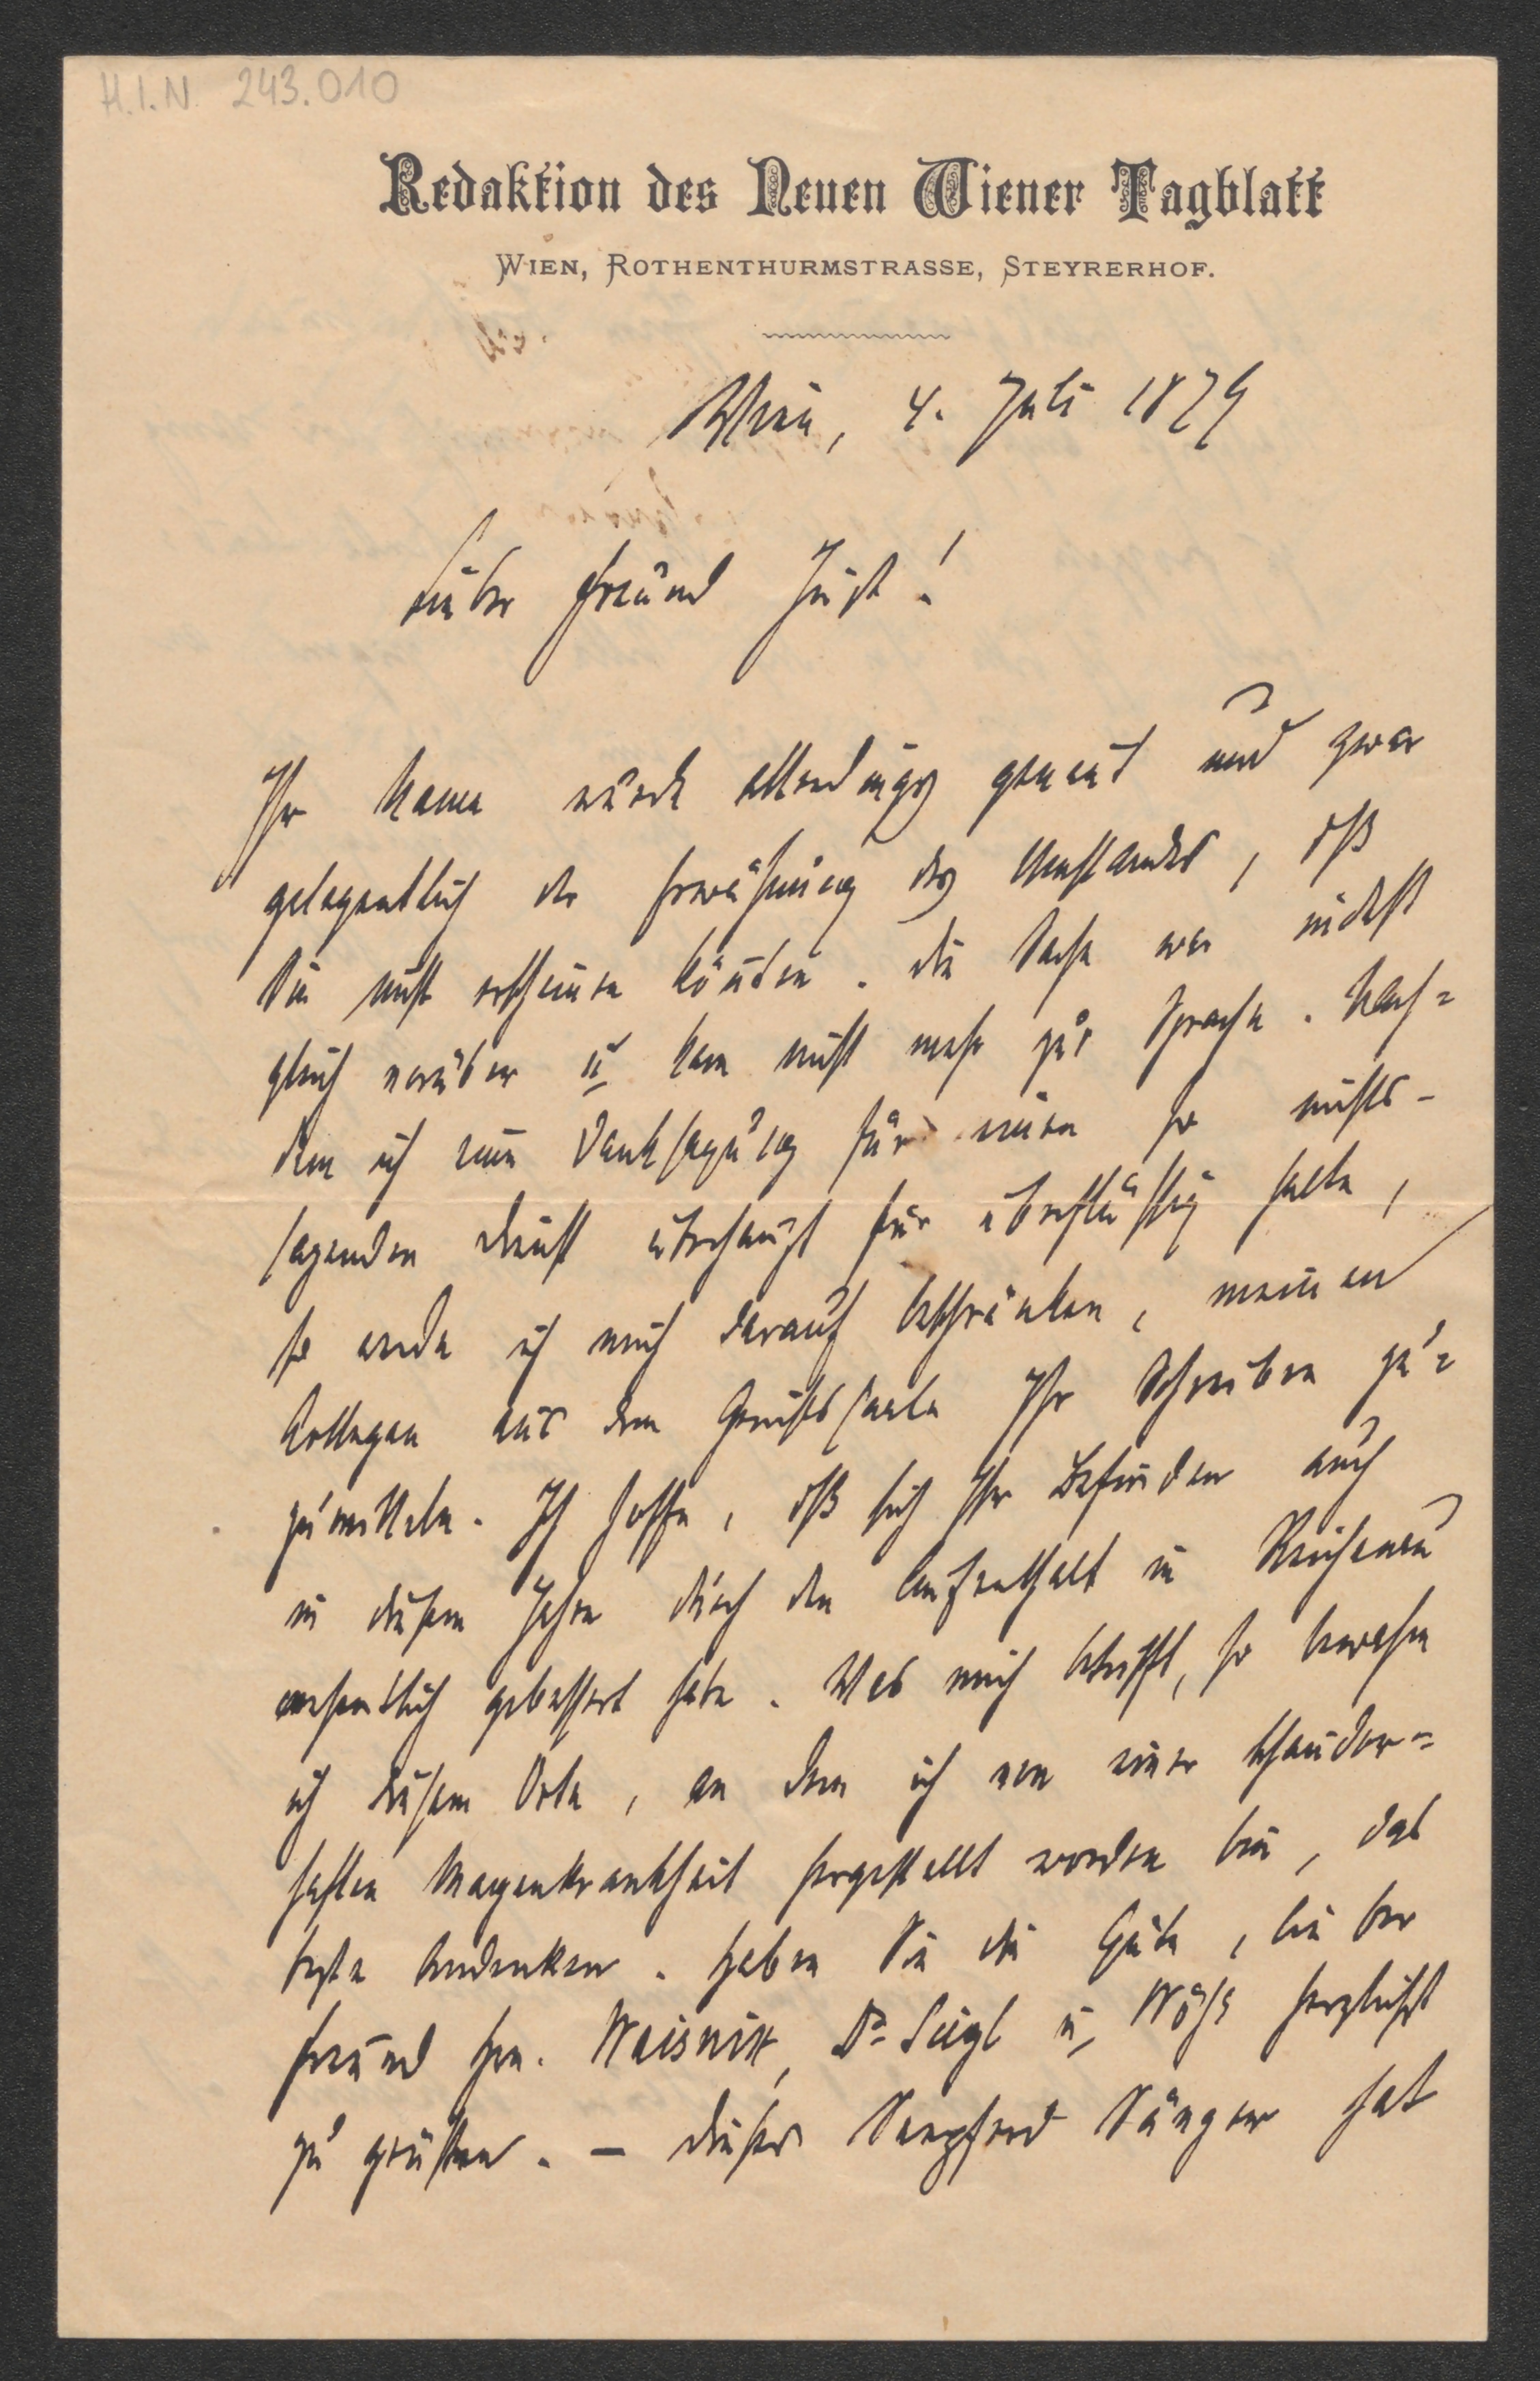 H.I.N. 243.010
Redaktion des Neuen Wiener Tagblatt
WIEN, ROTHENTHURMSTRASSE, STEYRERHOF.
Wien, 4. Juli 1879
Lieber Freund Just!
Ihr Name wurde allerdings genannt und zwar
gelegentlich der Erwähnung des Umstandes, dß
Sie nicht erscheinen könnten. Die Sache war
gleich vorüber u kam nicht mehr zur Sprache. Nach-
dem ich eine Danksagung für einen so nichts-
sagenden Dienst überhaupt für überflüssig halte,
so werde ich mich darauf beschränken, meinen
Kollegen aus dem Gerichtssaale Ihr Schreiben zu-
zumitteln. Ich hoffe, dß sich Ihr Befinden auch
in diesem Jahre durch den Aufenthalt in Reichenau
wesentlich gebessert habe. Was mich betrifft, so bewahre
ich diesem Orte, an dem ich von einer schauder-
haften Magenkrankheit hergestellt worden bin, das
beste Andenken. Haben Sie die Güte, lieber
Freund Hrn. Waisnix, Dr u herzlichst
zu grüßen. – Dieser Sänger hat